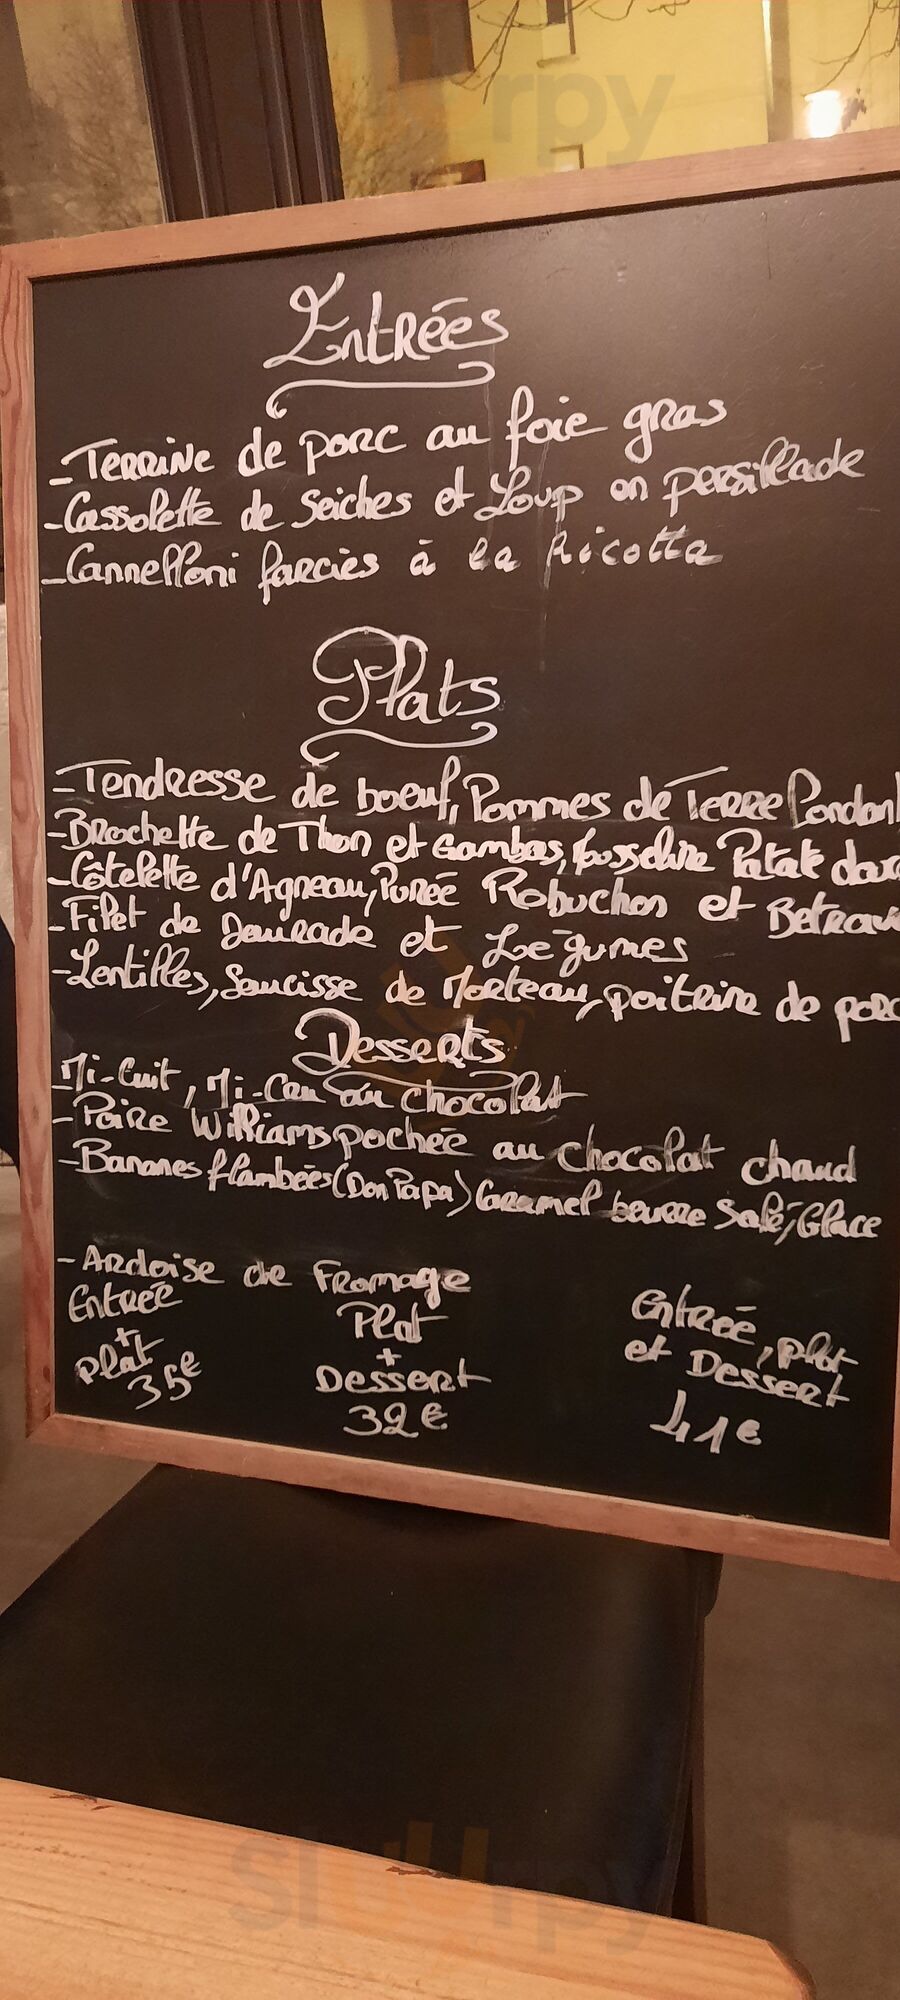 Slurpy
Entrées
-Terrine de porc au foie gras
-Cassolette de Seiches et Loup en persillade
-Cannelloni farcies à la Ricotta
Plats
-Tendresse de boeuf, Pommes de Terre
-Brochette de Thon et Gambas, Patate
-Côtelette d'Agneau, Purée Robuchon et
-Filet de Daurade et Légumes
-Lentilles, Saucisse de Morteau, poitrine de porc
Desserts
-Mi-Cuit, Mi-Cru au chocolat
-Poire Williams pochée au chocolat chaud
-Bananes flambées (Don Papa) Caramel beurre Salé, Glace
-Ardoise de Fromage
Entrée
+
Plat
35€
Plat
+
Dessert
32€
Entrée, plat
et Dessert
41€
Slurpy